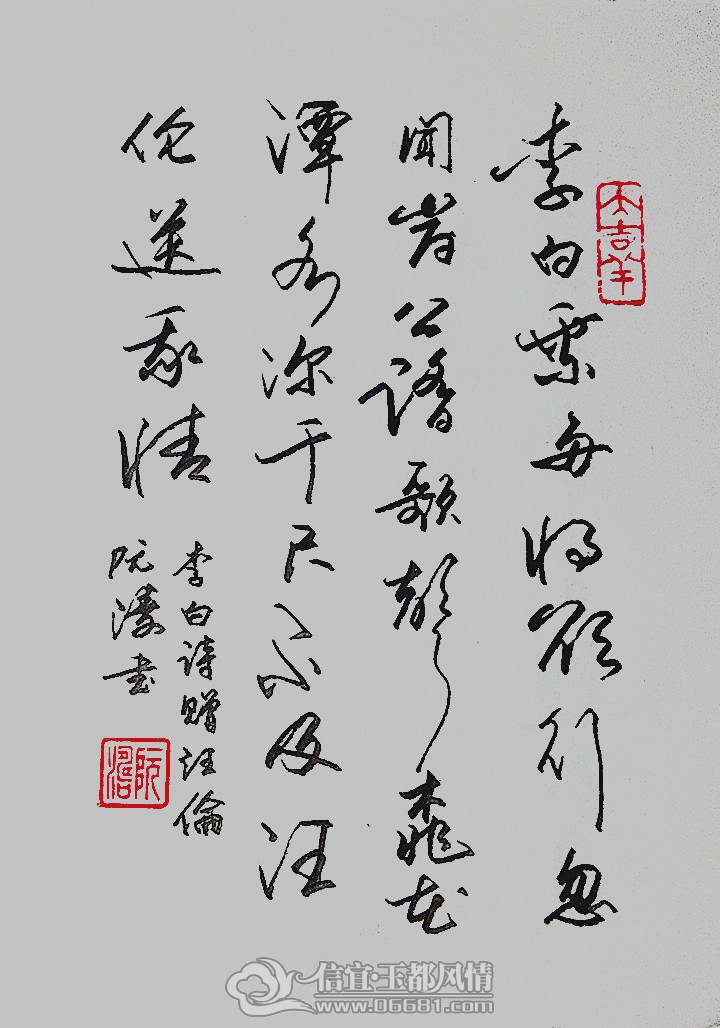 大吉羊
李白乘舟将欲行忽
闻岸上踏歌声桃花
潭水深千尺不及汪
伦送我情
李白詩赠汪倫
阮书
阮
信宜·玉都风情
www.06681.com